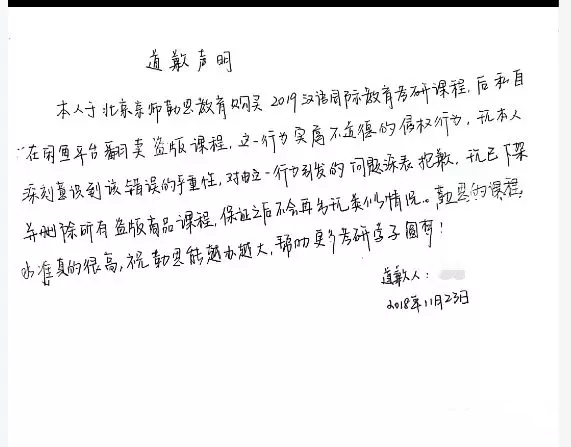 道歉声明
本人于北京京师勤思教育购买2019汉语国际教育考研课程,后私自
在闲鱼平台翻卖盗版课程,这一行为实属不道德的侵权行为,现本人
深刻意识到该错误的严重性,对由这一行为引发的问题深表抱歉,现已下架
并删除所有盗版商品课程,保证之后不会再出现类似情况。勤思的课程
水准真的很高,祝勤思能越办越大,帮助更多考研学子圆梦!
道歉人:
2018年11月23日